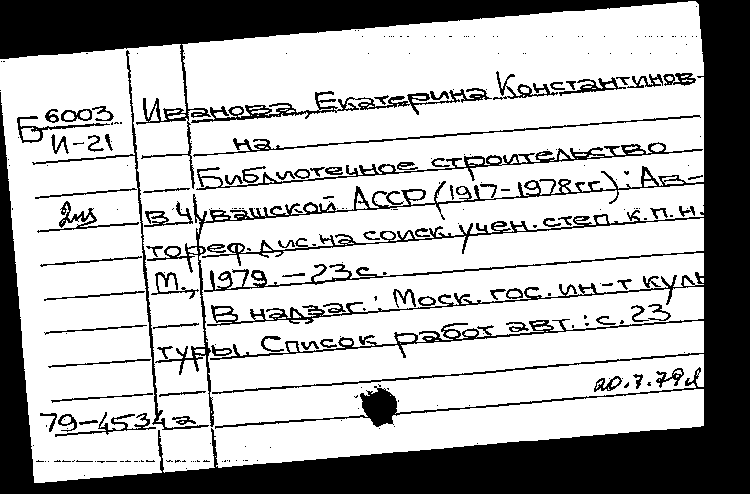 Б 6003
И-21
Иванова, Екатерина Константинов-
на.
Библиотечное строительство
в Чувашской АССР (1917-1978гг.): Ав-
тореф. дис. на соиск. учен. степ. к.п.н.
М., 1979. - 23с.
В надзаг.: Моск. гос. ин-т куль
туры. Список работ авт.: с. 23
20.7.79
79-4534а